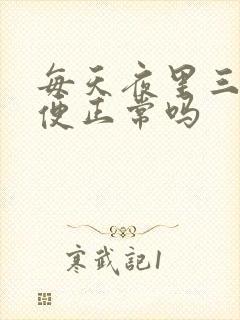 每天夜里三
便正常吗
寒武記1